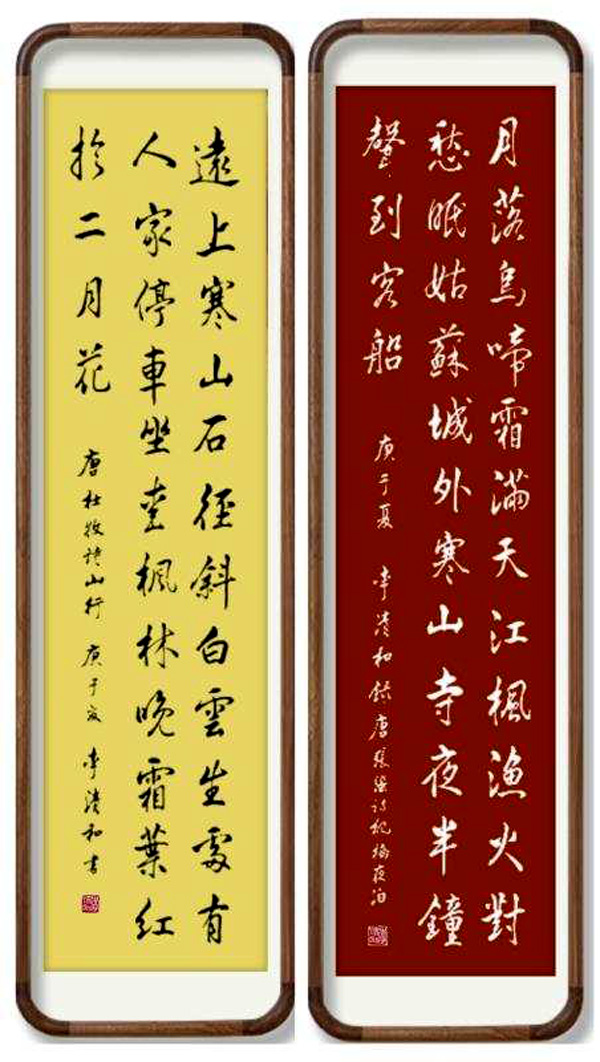 月落烏啼霜滿天江楓漁火對
愁眠姑蘇城外寒山寺夜半鐘
聲到客船
庚子夏 李清和錄唐張繼詩楓橋夜泊
遠上寒山石徑斜白雲生處有
人家停車坐愛楓林晚霜葉紅
於二月花
唐杜牧詩山行 庚子夏 李清和書